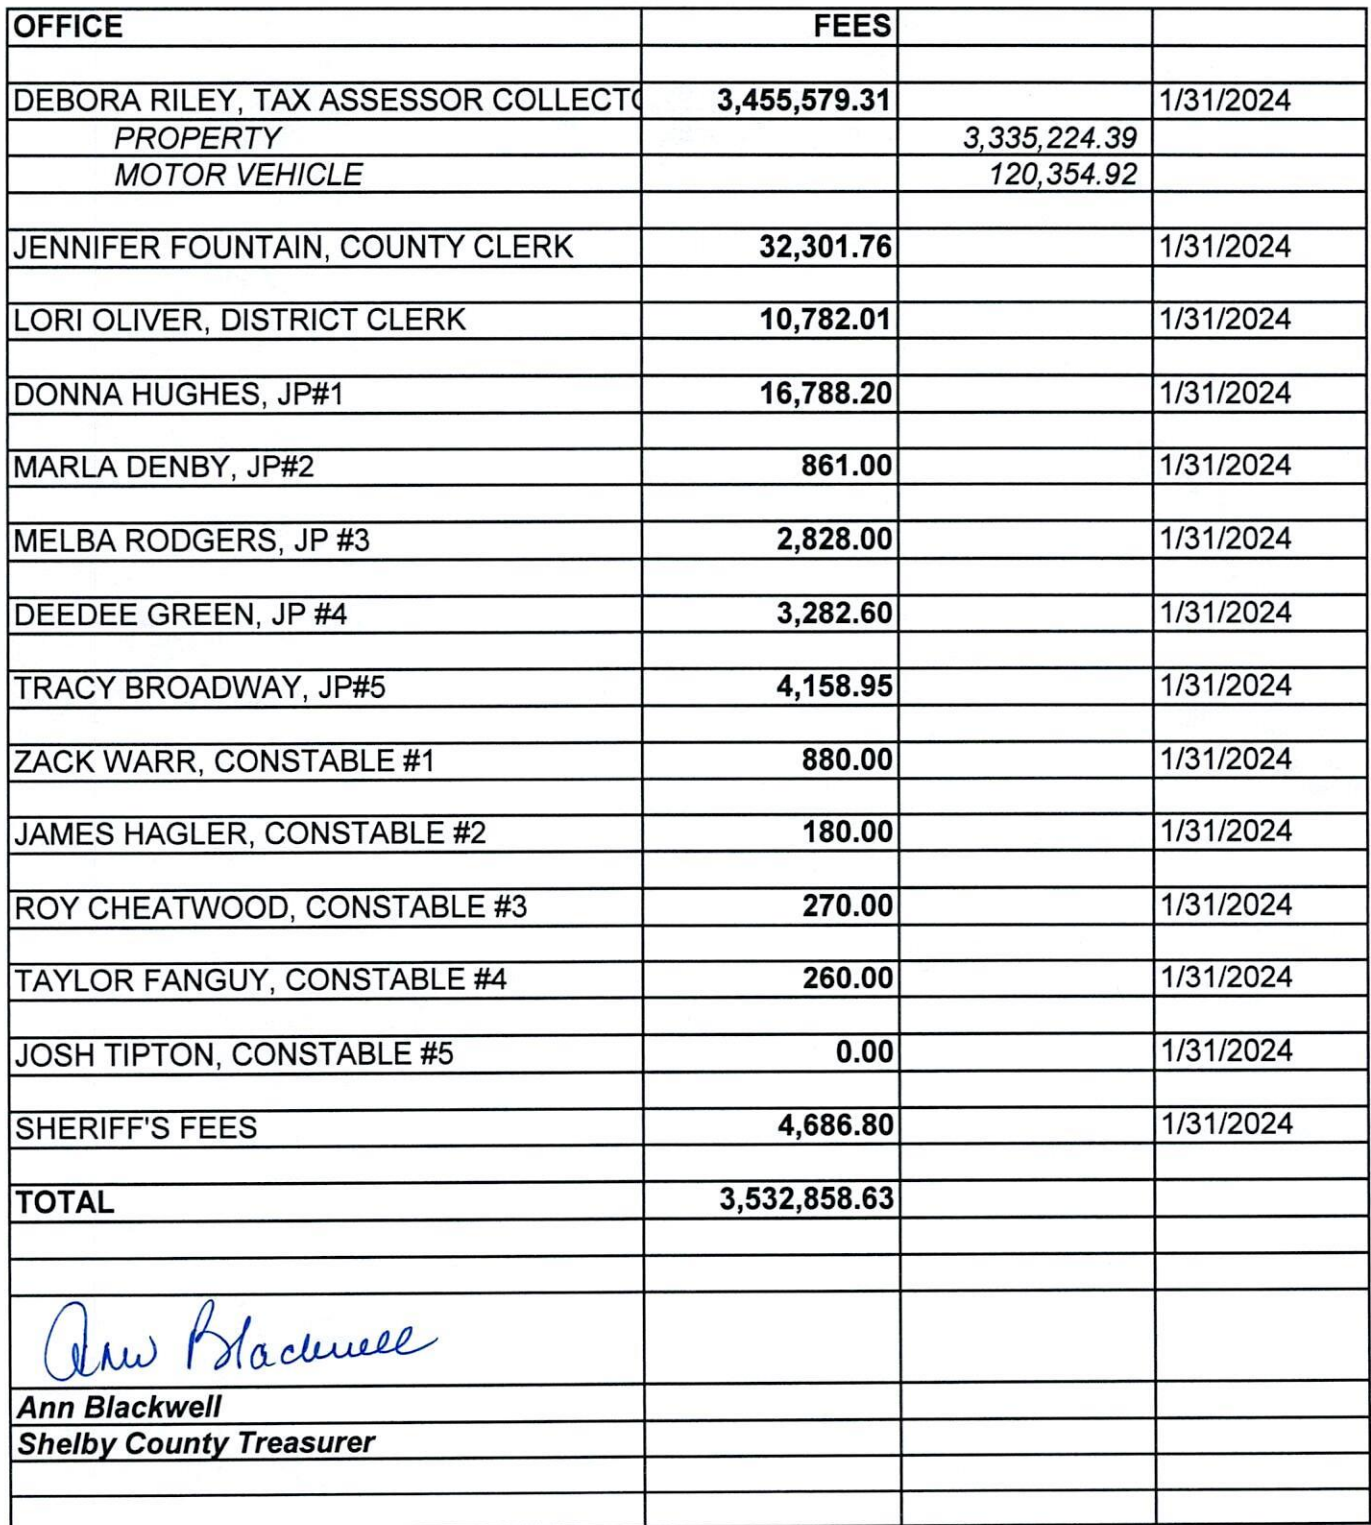 OFFICE FEES
DEBORA RILEY, TAX ASSESSOR COLLECTO 3,455,579.31 1/31/2024
PROPERTY 3,335,224.39
MOTOR VEHICLE 120,354.92
JENNIFER FOUNTAIN, COUNTY CLERK 32,301.76 1/31/2024
LORI OLIVER, DISTRICT CLERK 10,782.01 1/31/2024
DONNA HUGHES, JP#1 16,788.20 1/31/2024
MARLA DENBY, JP#2 861.00 1/31/2024
MELBA RODGERS, JP #3 2,828.00 1/31/2024
DEEDEE GREEN, JP #4 3,282.60 1/31/2024
TRACY BROADWAY, JP#5 4,158.95 1/31/2024
ZACK WARR, CONSTABLE #1 880.00 1/31/2024
JAMES HAGLER, CONSTABLE #2 180.00 1/31/2024
ROY CHEATWOOD, CONSTABLE #3 270.00 1/31/2024
TAYLOR FANGUY, CONSTABLE #4 260.00 1/31/2024
JOSH TIPTON, CONSTABLE #5 0.00 1/31/2024
SHERIFF'S FEES 4,686.80 1/31/2024
TOTAL 3,532,858.63
Ann Blackwell
Ann Blackwell
Shelby County Treasurer